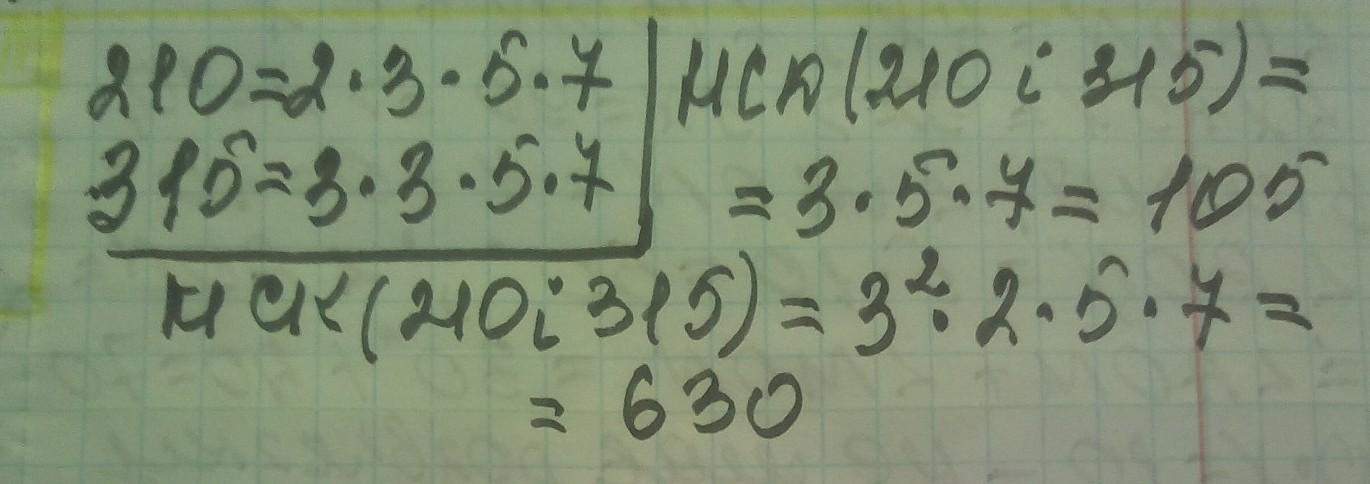 210=2·3·5·7
315=3·3·5·7
НСД(210 і 315)=
=3·5·7=105
НСК(210 і 315)=3²·2·5·7=
=630